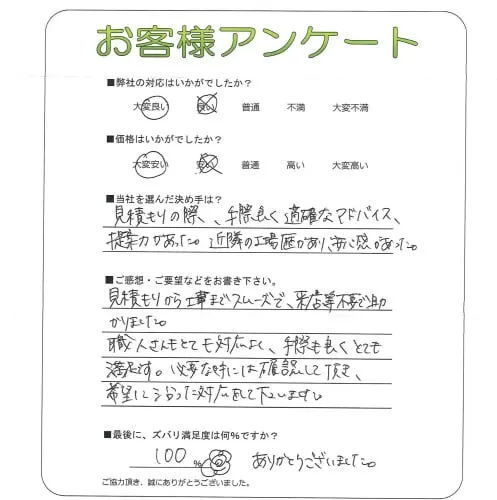 お客様アンケート
■弊社の対応はいかがでしたか？
大変良い 良い 普通 不満 大変不満
■価格はいかがでしたか？
大変安い 安い 普通 高い 大変高い
■当社を選んだ決め手は？
見積もりの際、、手際良く適確なアドバイス、
提案力があった。近隣の工場歴があり、安心感があった。
■ご感想・ご要望などをお書き下さい。
見積もりから工事までスムーズで、来店等不要で助
かりました。
職人さんもとても対応よく、手際も良くとても
満足です。必要な時には確認して頂き、
希望にそった対応をして下さいます。
■最後に、ズバリ満足度は何%ですか？
100 % ありがとうございました。
ご協力頂き、誠にありがとうございました。